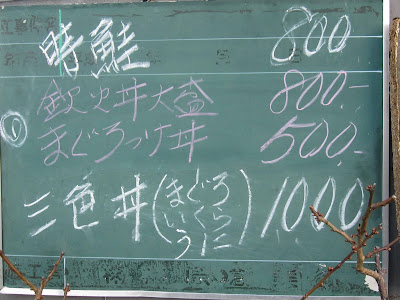 時鮭 800
欽次丼大盛 800.-
① まぐろつけ丼 500.-
三色丼(まぐろ いくら うに) 1000